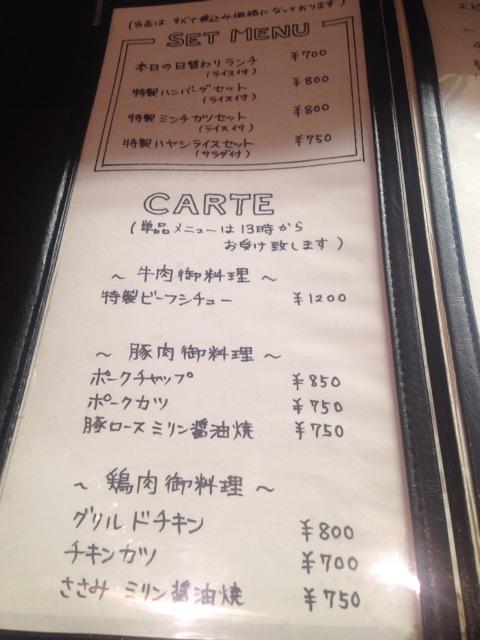 (当店は、すべて税込み価格になっております)
SET MENU
本日の日替わりランチ ¥700
(ライス付)
特製ハンバーグセット ¥800
(ライス付)
特製ミンチカツセット ¥800
(ライス付)
特製ハヤシライスセット ¥750
(サラダ付)
CARTE
(単品メニューは13時から
お受け致します)
～牛肉御料理～
特製ビーフシチュー ¥1200
～豚肉御料理～
ポークチャップ ¥850
ポークカツ ¥750
豚ロースミリン醤油焼 ¥750
～鶏肉御料理～
グリルドチキン ¥800
チキンカツ ¥700
ささみミリン醤油焼 ¥750
エビ